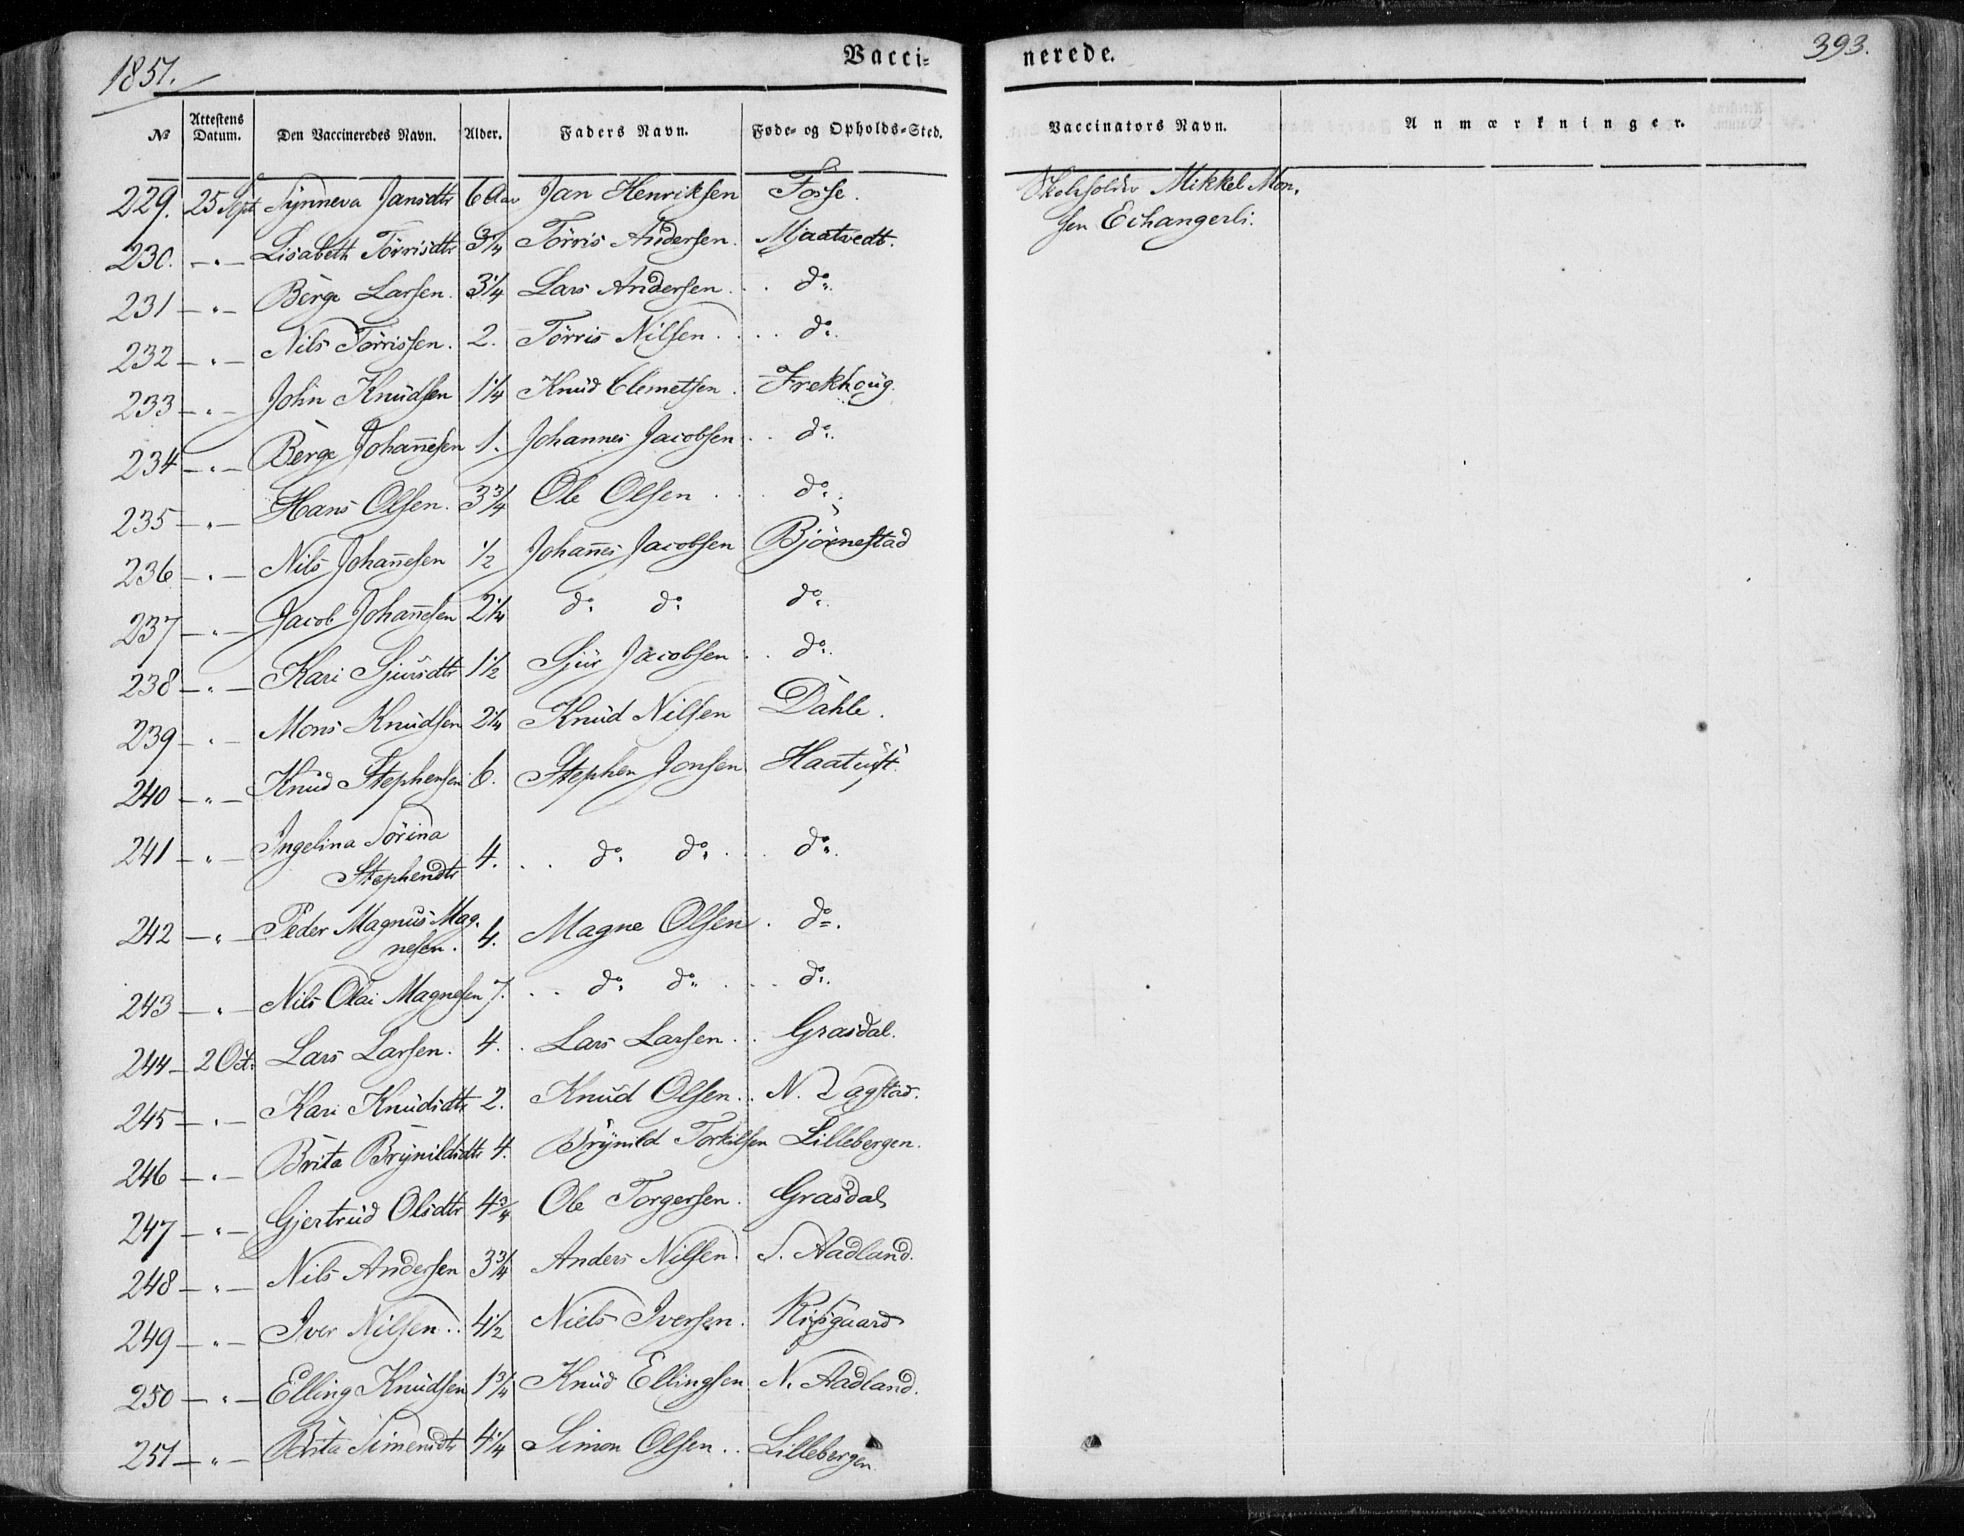 1851.
Vaccinerede.
393.
№ Attestens Datum. Den Vaccineredes Navn. Alder. Faders Navn. Føde- og Opholds-Sted. Vaccinators Navn. Anmærkninger.
229. 25 Sept Synneva Jansdtr 6 Aar Jan Henriksen Fosse. Skoleholder Mikkel Mon-
sen Echangerli.
230. — " — Lisabeth Törrisdtr 3 1/4 Törris Andersen. Mjaatvedt.
231 — " — Börge Larsen. 3 1/4 Lars Andersen . . do.
232 — " — Nils Törrissen. 2. Törris Nilsen . . . do.
233 — " — John Knudsen 1 1/4 Knud Clemetsen. Frekhoug.
234 — " — Börge Johannesen 1. Johannes Jacobsen . . do.
235 — " — Hans Olsen. 3 3/4 Ole Olsen . . . do.
236 — " — Nils Johannesen 1/2 Johannes Jacobsen Björnestad
237 — " — Jacob Johannesen 2 1/4 do. do. do.
238 — " — Kari Sjursdtr 1 1/2 Sjur Jacobsen . . do.
239 — " — Mons Knudsen 2 1/4 Knud Nilsen Dahle.
240 — " — Knud Stephensen 6. Stephen Jonsen Haatuft.
241 — " — Ingelina Sörina
Stephendtr 4. . . do. do. . . do.
242 — " — Peder Magnus Mag-
nesen. 4. Magne Olsen . do.
243 — " — Nils Olai Magnesen 7. . . do. do. . . do.
244 — 2 Oct. Lars Larsen. 4. . Lars Larsen . . Grasdal.
245 — " — Kari Knudsdtr 2. Knud Olsen . . N. Tagstad.
246 — " — Brita Brynildsdtr 4. Brynild Torkilsen Lillebergen.
247 — " — Gjertrud Olsdtr 4 3/4 Ole Torgersen. Grasdal
248 — " — Nils Andersen 3 3/4 Anders Nilsen. S. Aadland.
249 — " — Iver Nilsen . . 4 1/2 Niels Iversen. Risguard
250 — " — Elling Knudsen 1 3/4 Knud Ellingsen N. Aadland.
251 — " — Brita Simensdtr 4 1/4 Simon Olsen . . Lillebergen.